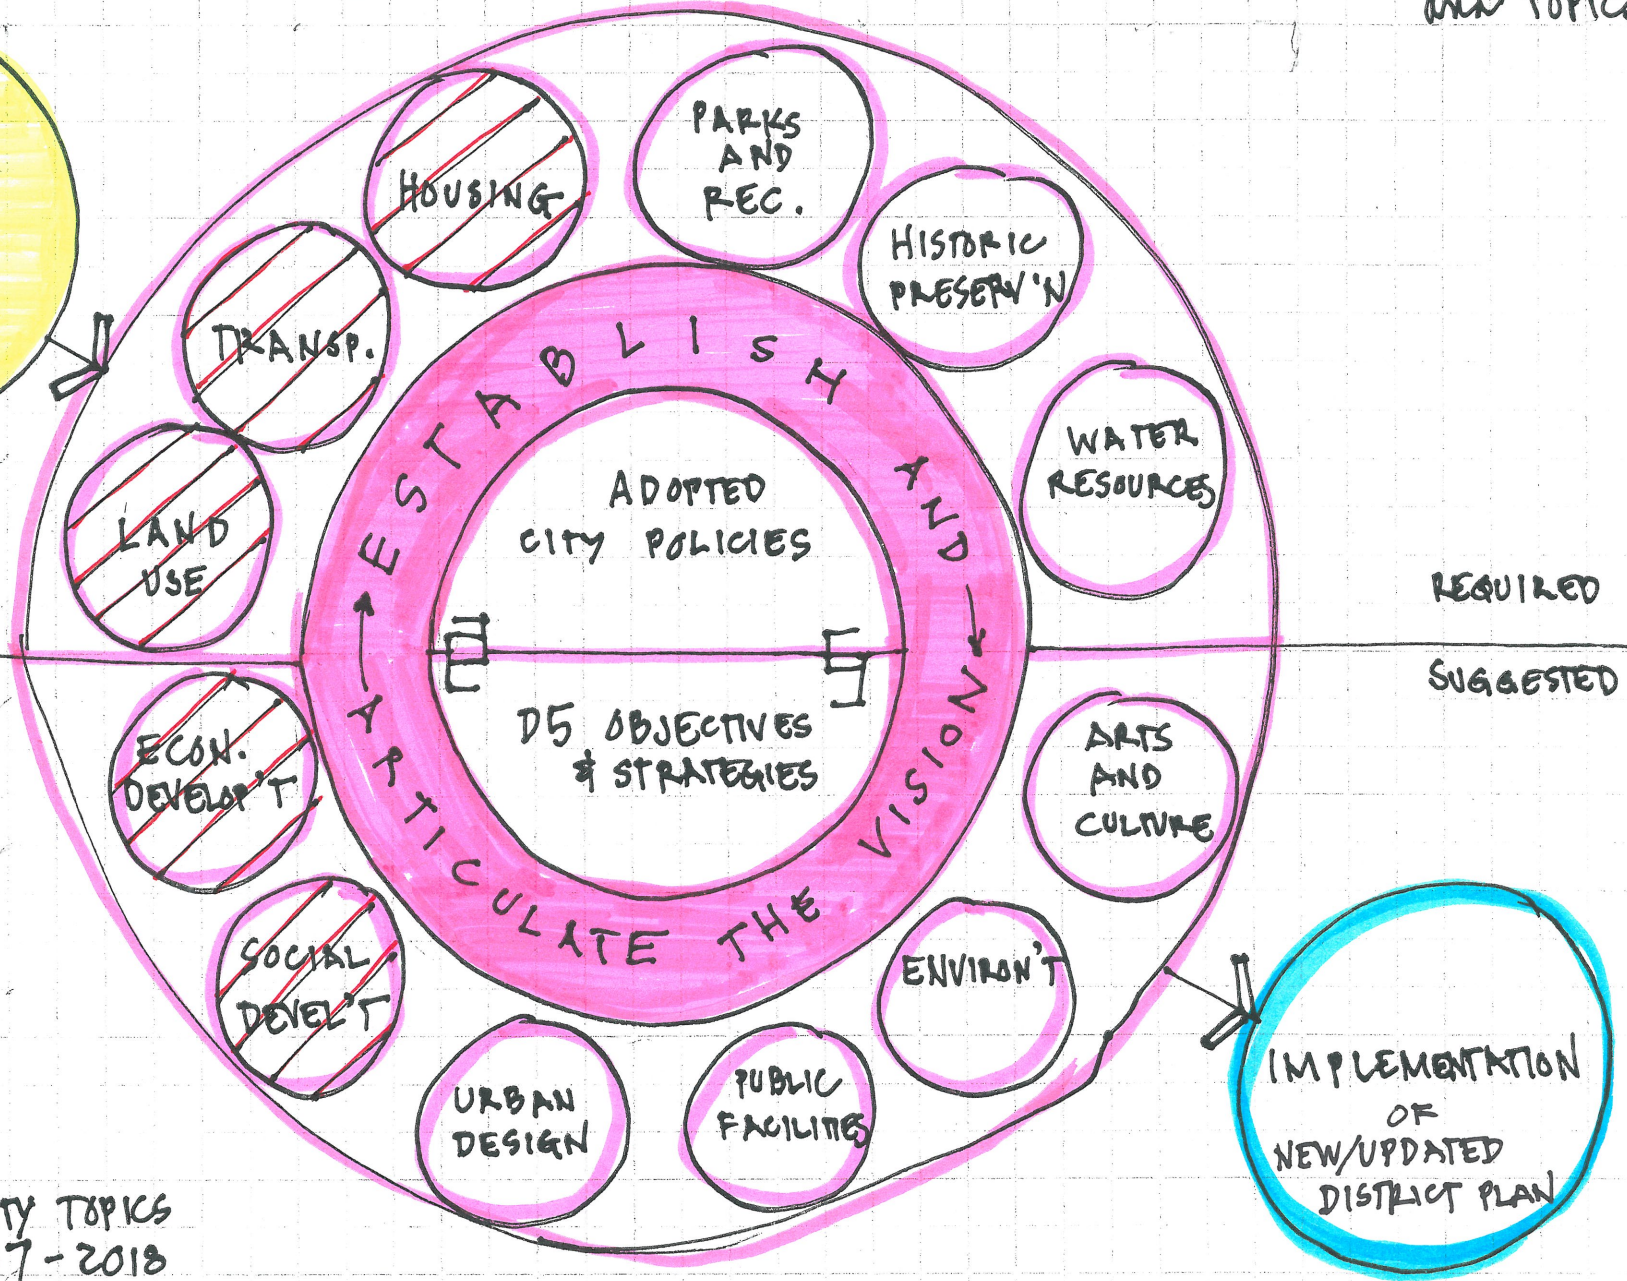 TOPICS
HOUSING
PARKS
AND
REC.
HISTORIC
PRESERV'N
TRANSP.
WATER
RESOURCES
LAND
USE
ESTABLISH AND
ARTICULATE THE VISION
ADOPTED
CITY POLICIES
D5 OBJECTIVES
& STRATEGIES
REQUIRED
SUGGESTED
ECON.
DEVELOP'T
SOCIAL
DEVEL'T
URBAN
DESIGN
PUBLIC
FACILITIES
ENVIRON'T
ARTS
AND
CULTURE
IMPLEMENTATION
OF
NEW/UPDATED
DISTRICT PLAN
TY TOPICS
7-2018